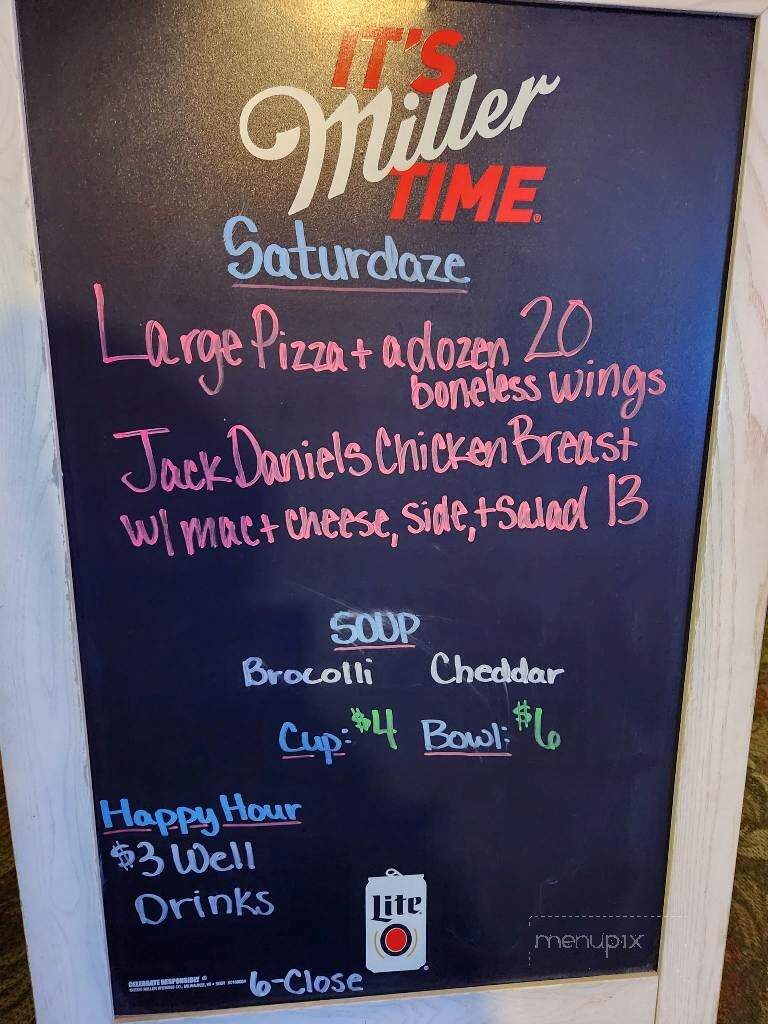 IT'S
Miller
TIME
Saturdaze
Large Pizza + a dozen 20
boneless wings
Jack Daniels Chicken Breast
w/ mac + cheese, side, + salad 13
SOUP
Brocolli Cheddar
Cup: $4 Bowl: $6
Happy Hour
$3 Well
Drinks
Lite
menupix
CELEBRATE RESPONSIBLY ®
6-Close